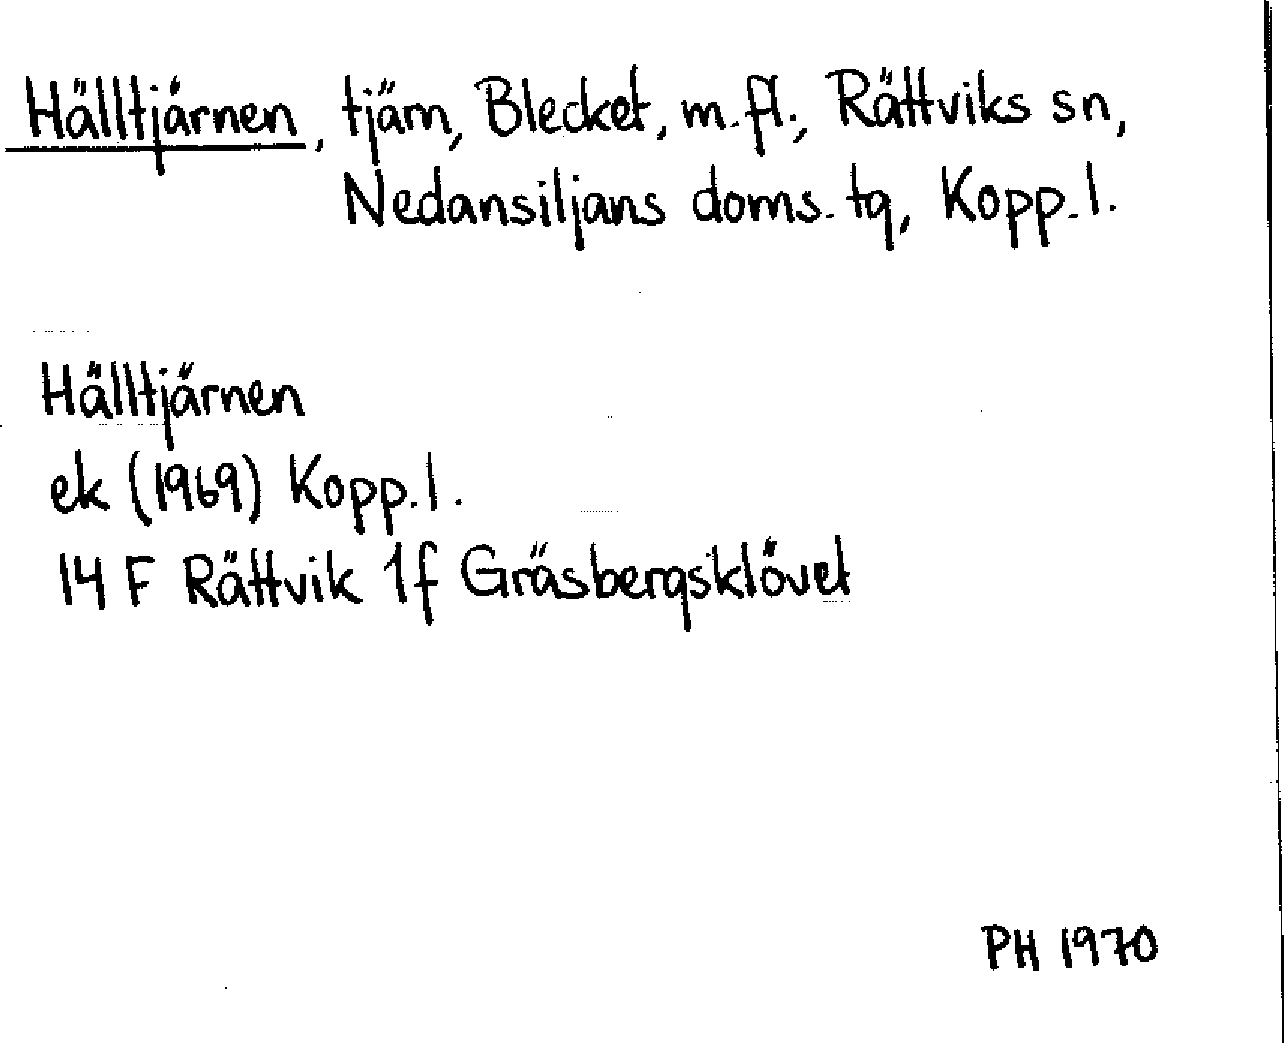 Hälltjärnen, tjärn, Blecket, m.fl., Rättviks sn,
Nedansiljans doms.tg, Kopp.l.
Hälltjärnen
ek (1969) Kopp.l.
14 F Rättvik 1f Gräsbergsklövet
PH 1970